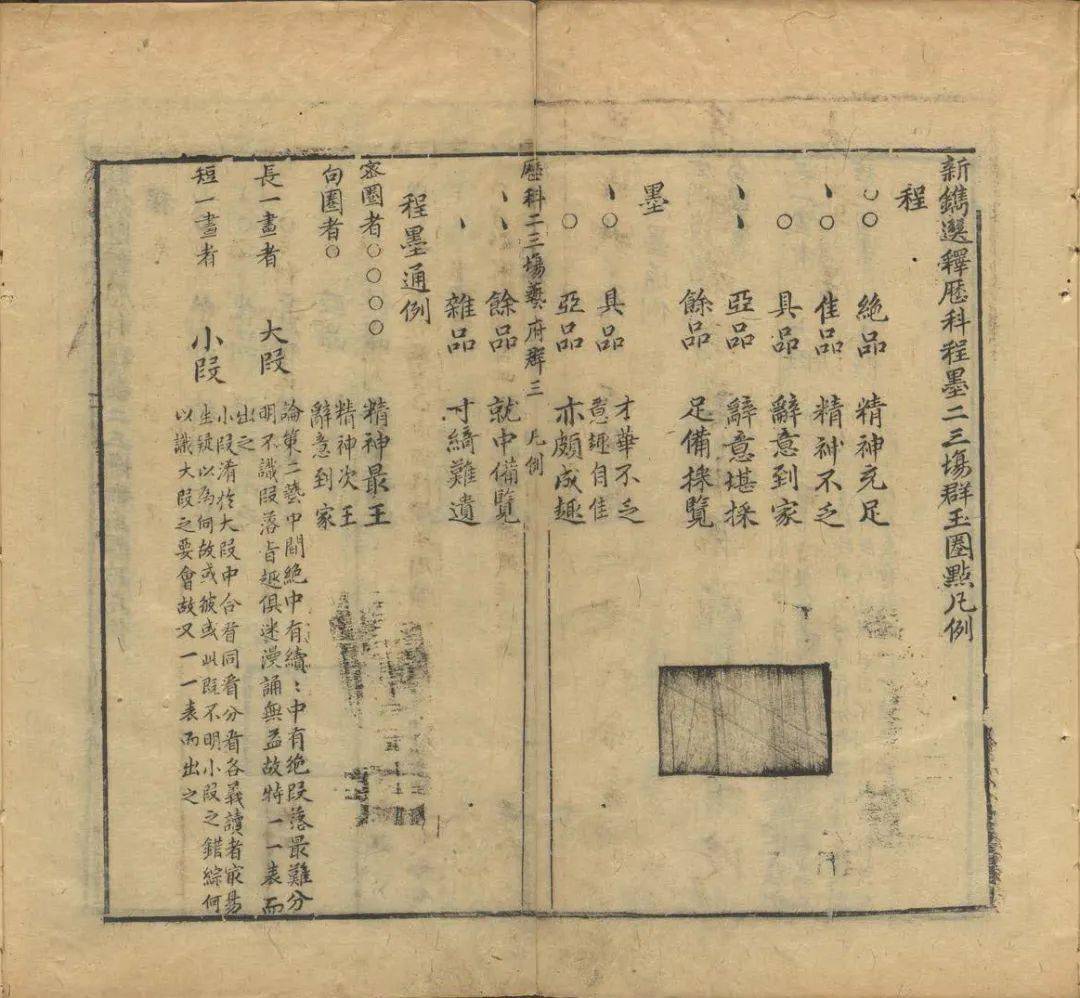 新鐫選釋歷科程墨二三塲群玉圈點凡例
程
○○ 絶品 精神充足
丶○ 佳品 精神不乏
○ 具品 辭意到家
丶丶 亞品 辭意堪採
餘品 足備採覽
墨
丶○ 具品 才華不乏意趣自佳
○ 亞品 亦頗成趣
丶丶 餘品 就中備覽
丶 雜品 寸綺難遺
歷科二三塲藝府群三 凡例
程墨通例
密圈者○○○○ 精神最王
句圈者○ 精神次王辭意到家
長一畫者 大段 論策二藝中間絶中有續﹕中有絶段落最難分明不識段落旨趣俱迷漫誦無益故特一一表而出之
短一畫者 小段 小段淆於大段中合看同看分看各義讀者㝡易生疑以為何故或彼或此既不明小段之錯綜何以識大段之要會故又一一表而出之